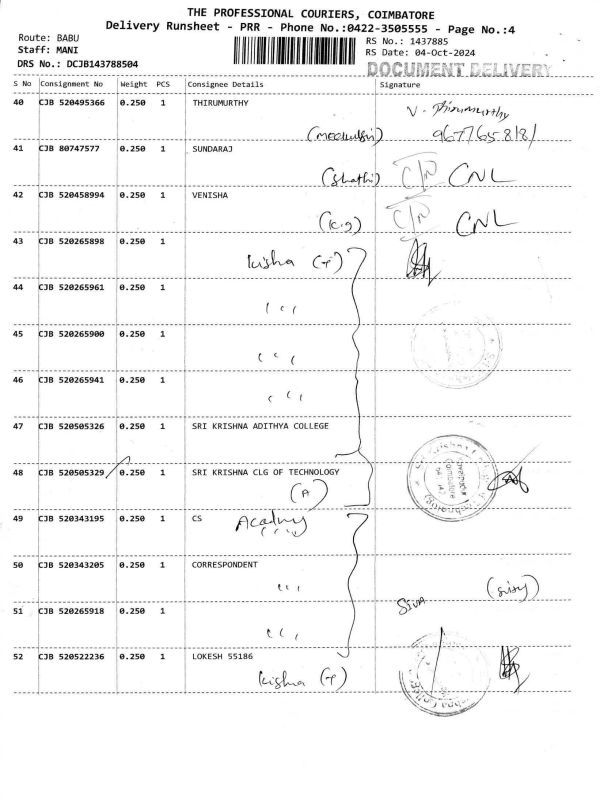 THE PROFESSIONAL COURIERS, COIMBATORE
Delivery Runsheet - PRR - Phone No.:0422-3505555 - Page No.:4
Route: BABU
RS No.: 1437885
Staff: MANI
RS Date: 04-Oct-2024
DRS No.: DCJB143788504
DOCUMENT DELIVERY
S No Consignment No Weight PCS Consignee Details Signature
40 CJB 520495366 0.250 1 THIRUMURTHY V. Thirumurthy
9677658181
41 CJB 80747577 0.250 1 SUNDARAJ
CNL
42 CJB 520458994 0.250 1 VENISHA
CNL
43 CJB 520265898 0.250 1
44 CJB 520265961 0.250 1
45 CJB 520265900 0.250 1
46 CJB 520265941 0.250 1
47 CJB 520505326 0.250 1 SRI KRISHNA ADITHYA COLLEGE
48 CJB 520505329 0.250 1 SRI KRISHNA CLG OF TECHNOLOGY
(A)
49 CJB 520343195 0.250 1 CS
Academy
50 CJB 520343205 0.250 1 CORRESPONDENT
51 CJB 520265918 0.250 1
SIVA
52 CJB 520522236 0.250 1 LOKESH 55186